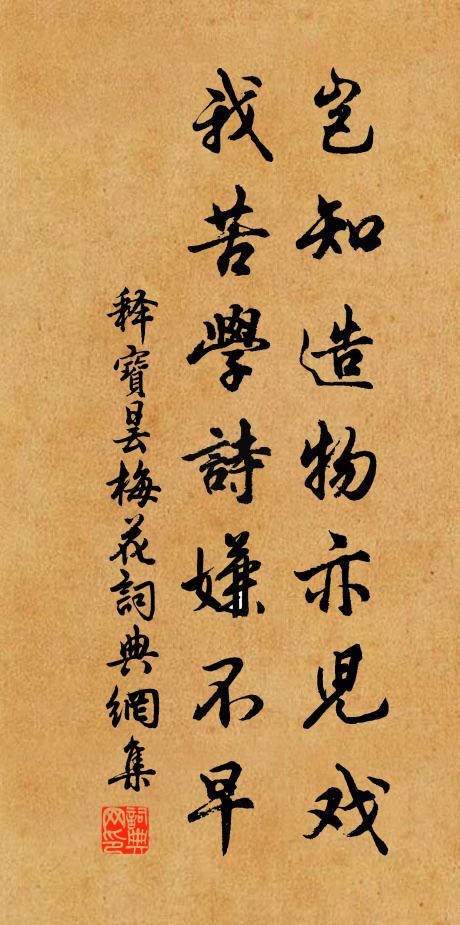 岂知造物亦児戏
我苦學詩嫌不早
释寶昙梅花詞典網集
詞典网印